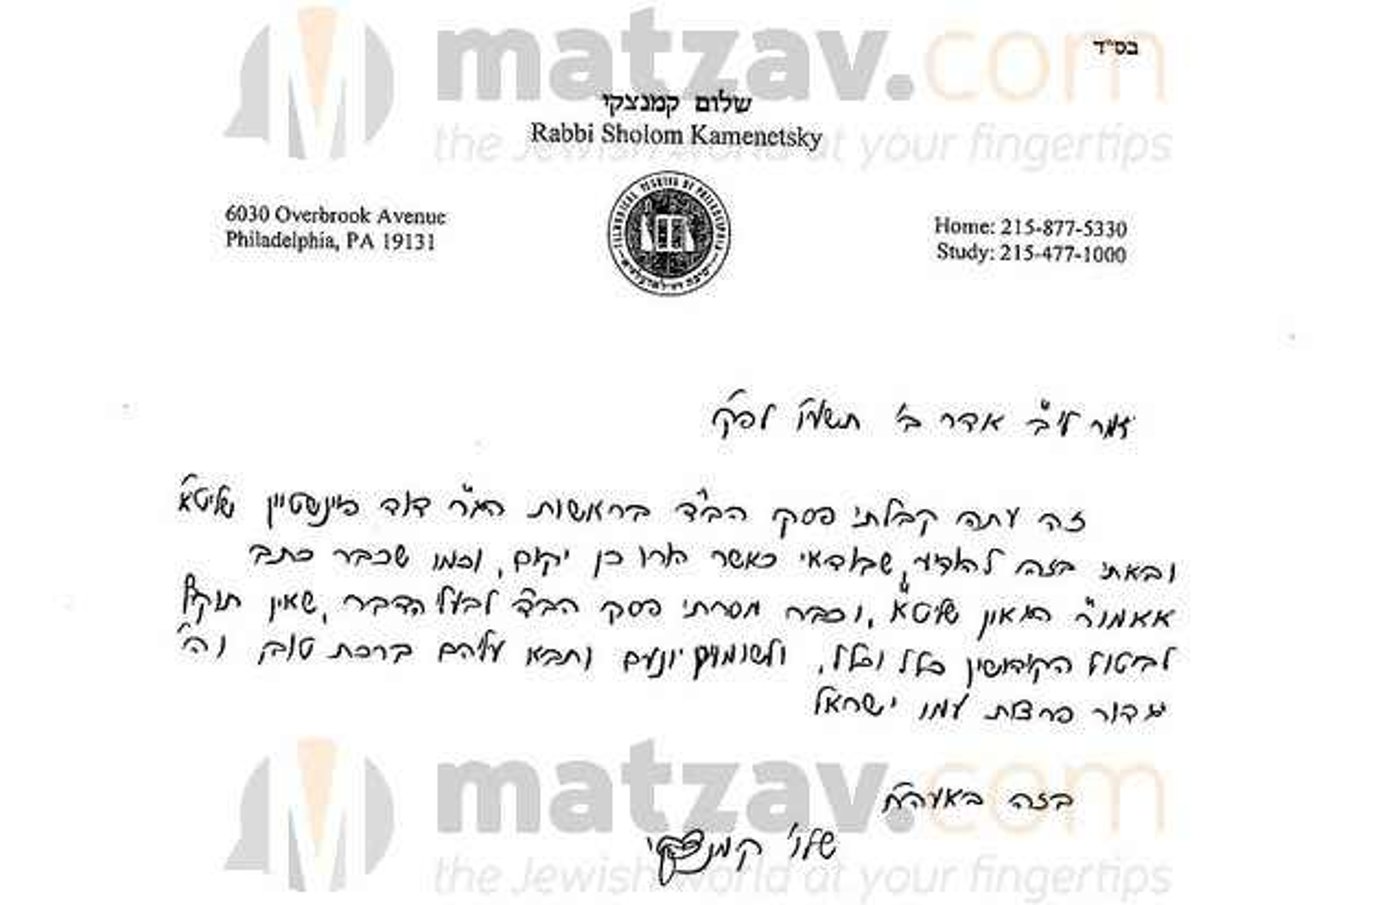 matzav.com
the Jewish world at your fingertips
בס"ד
שלום קמנצקי
Rabbi Sholom Kamenetsky
6030 Overbrook Avenue
Philadelphia, PA 19131
TALMUDICAL YESHIVA OF PHILADELPHIA
Home: 215-877-5330
Study: 215-477-1000
אדר ב' תשע"ו לפ"ק
זה עתה קבלתי פסק הב"ד בראשות הג"ר דוד פיינשטיין שליט"א
ובאתי בזה להודיע, שבודאי כאשר הורו כן יקום, וכמו שכבר כתב
אאמו"ר הגאון שליט"א, וכבר מסרתי פסק הב"ד לבעלי הדבר, שאין תוקף
לביטול הקידושין כלל וכלל, ולשומעים יונעם ותבא עליהם ברכת טוב, וה'
יגדור פרצות עמו ישראל
בזה באעה"ח
שלו' קמנצקי
matzav.com
the Jewish world at your fingertips